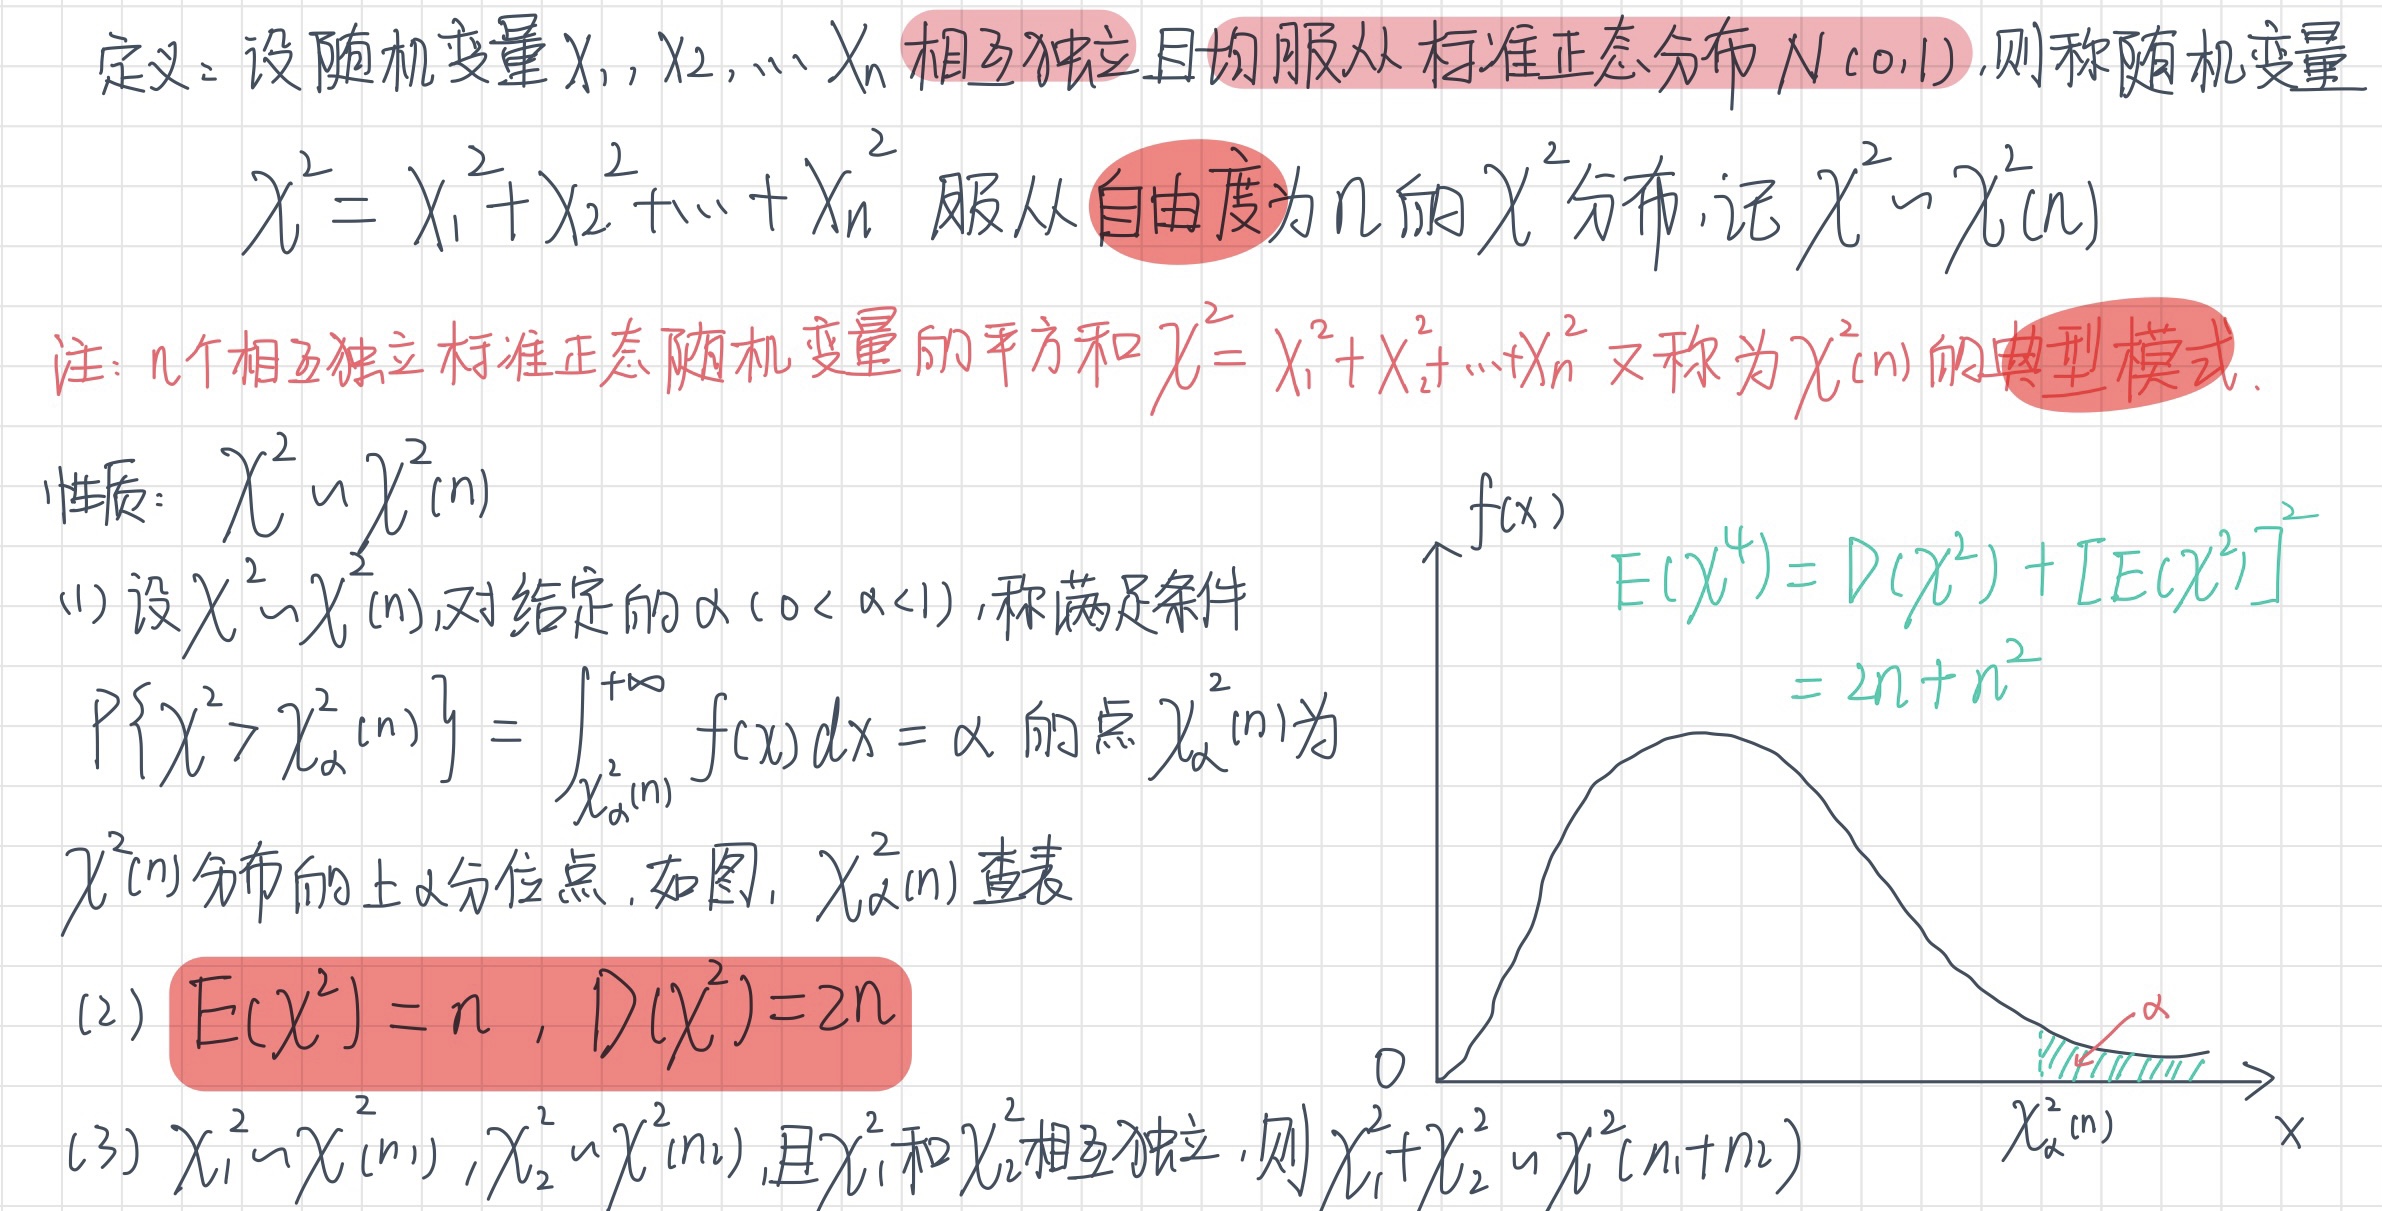 定义：设随机变量X₁, X₂, … Xₙ 相互独立且均服从标准正态分布N(0,1),则称随机变量
χ² = X₁² + X₂² + … + Xₙ² 服从自由度为n的χ²分布,记χ² ~ χ²(n)
注: n个相互独立标准正态随机变量的平方和χ² = X₁² + X₂² + … + Xₙ² 又称为χ²(n)的典型模式.
性质: χ² ~ χ²(n)
(1) 设χ² ~ χ²(n),对给定的α(0<α<1),称满足条件
P{χ² > χ²_α(n)} = ∫_{χ²_α(n)}^{+∞} f(x)dx = α 的点χ²_α(n)为
χ²(n)分布的上α分位点,如图, χ²_α(n)查表
(2) E(χ²) = n , D(χ²) = 2n
(3) χ₁² ~ χ²(n₁), χ₂² ~ χ²(n₂),且χ₁²和χ₂²相互独立,则χ₁² + χ₂² ~ χ²(n₁+n₂)
f(x)
E(χ⁴) = D(χ²) + [E(χ²)]²
= 2n + n²
α
0
χ²_α(n)
x